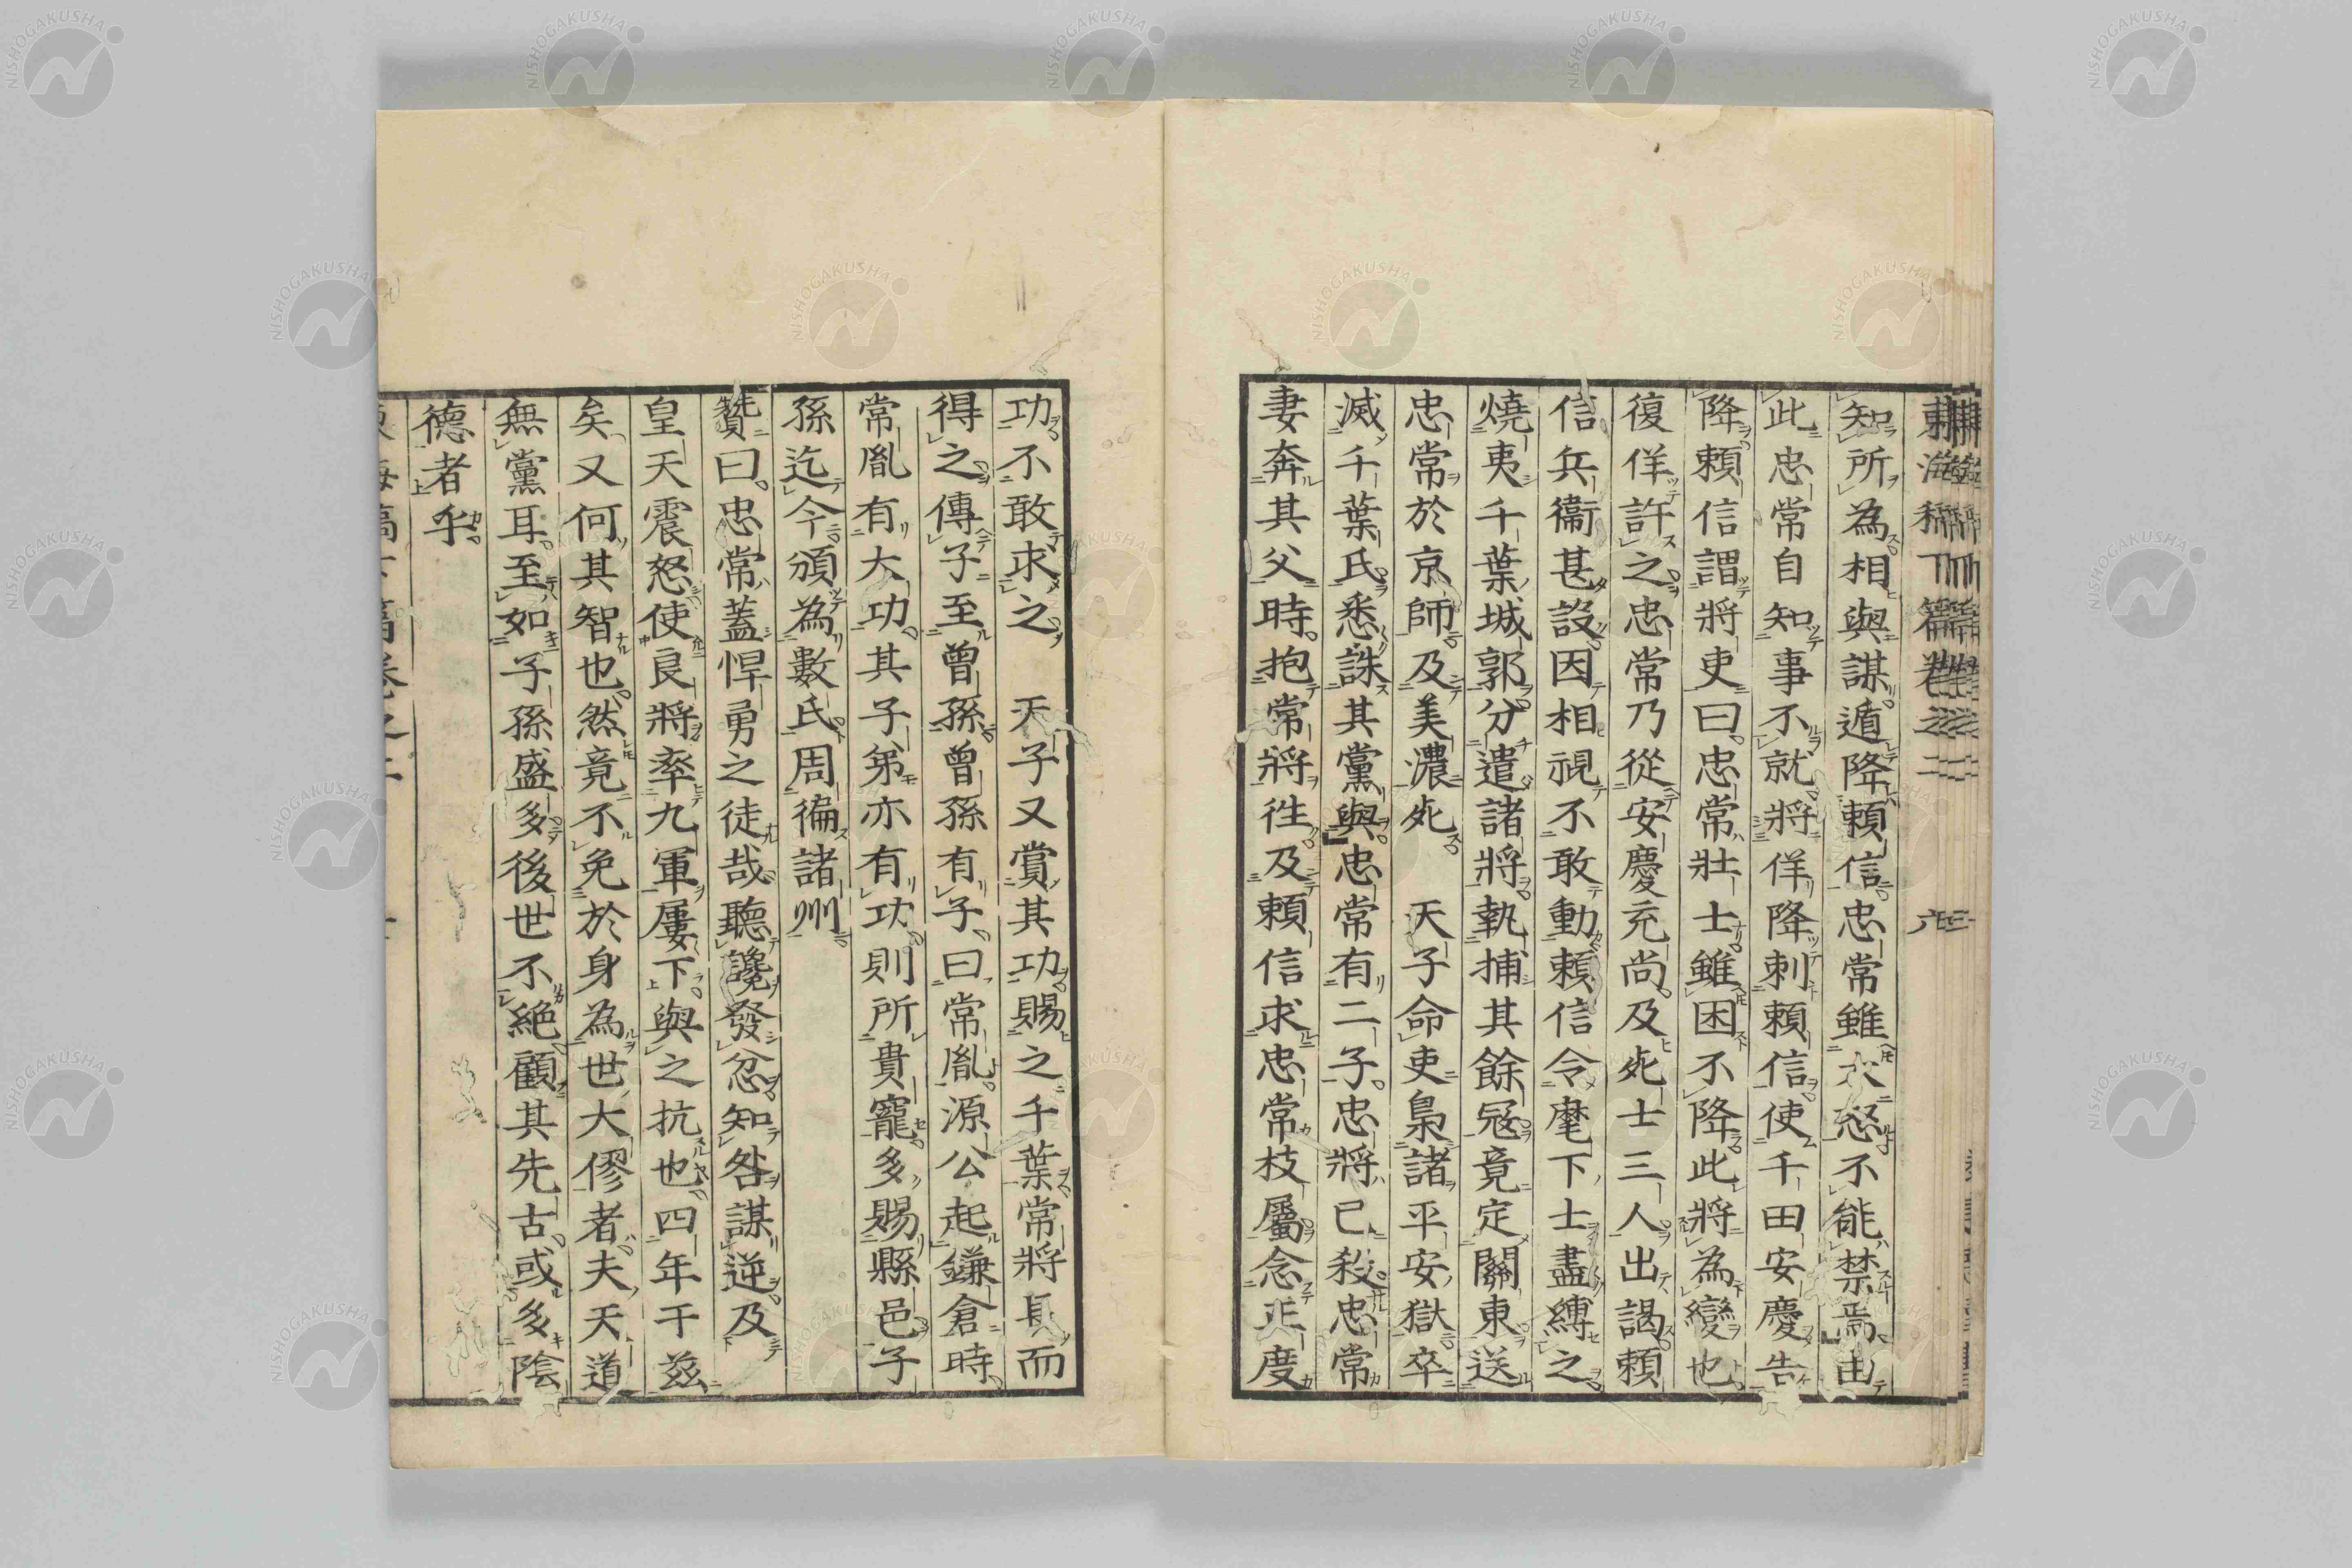 知所為相與謀遁降賴信忠常雖大怒不能禁焉由
此忠常自知事不就將佯降刺賴信使千田安慶告
降賴信謂將吏曰忠常壯士雖困不降此將為變也
復佯許之忠常乃從安慶充尚及死士三人出謁賴
信兵衞甚設因相視不敢動賴信令麾下士盡縛之
燒夷千葉城郭分遣諸將執捕其餘冦竟定關東送
忠常於京師及美濃死　天子命吏梟諸平安獄卒
滅千葉氏悉誅其黨與忠常有二子忠將已殺忠常
妻奔其父時抱常將徃及賴信求忠常枝屬念正度
功不敢求之　天子又賞其功賜之千葉常將長而
得之傳子至曾孫曾孫有子曰常胤源公起鎌倉時
常胤有大功其子弟亦有功則所貴寵多賜縣邑子
孫迄今頒為數氏周徧諸州
贊曰忠常蓋悍勇之徒哉聽讒發忿知咎謀逆及
皇天震怒使良將率九軍屢下與之抗也四年于茲
矣又何其智也然竟不免於身為世大僇者夫天道
無黨耳至如子孫盛多後世不絕顧其先古或多陰
德者乎